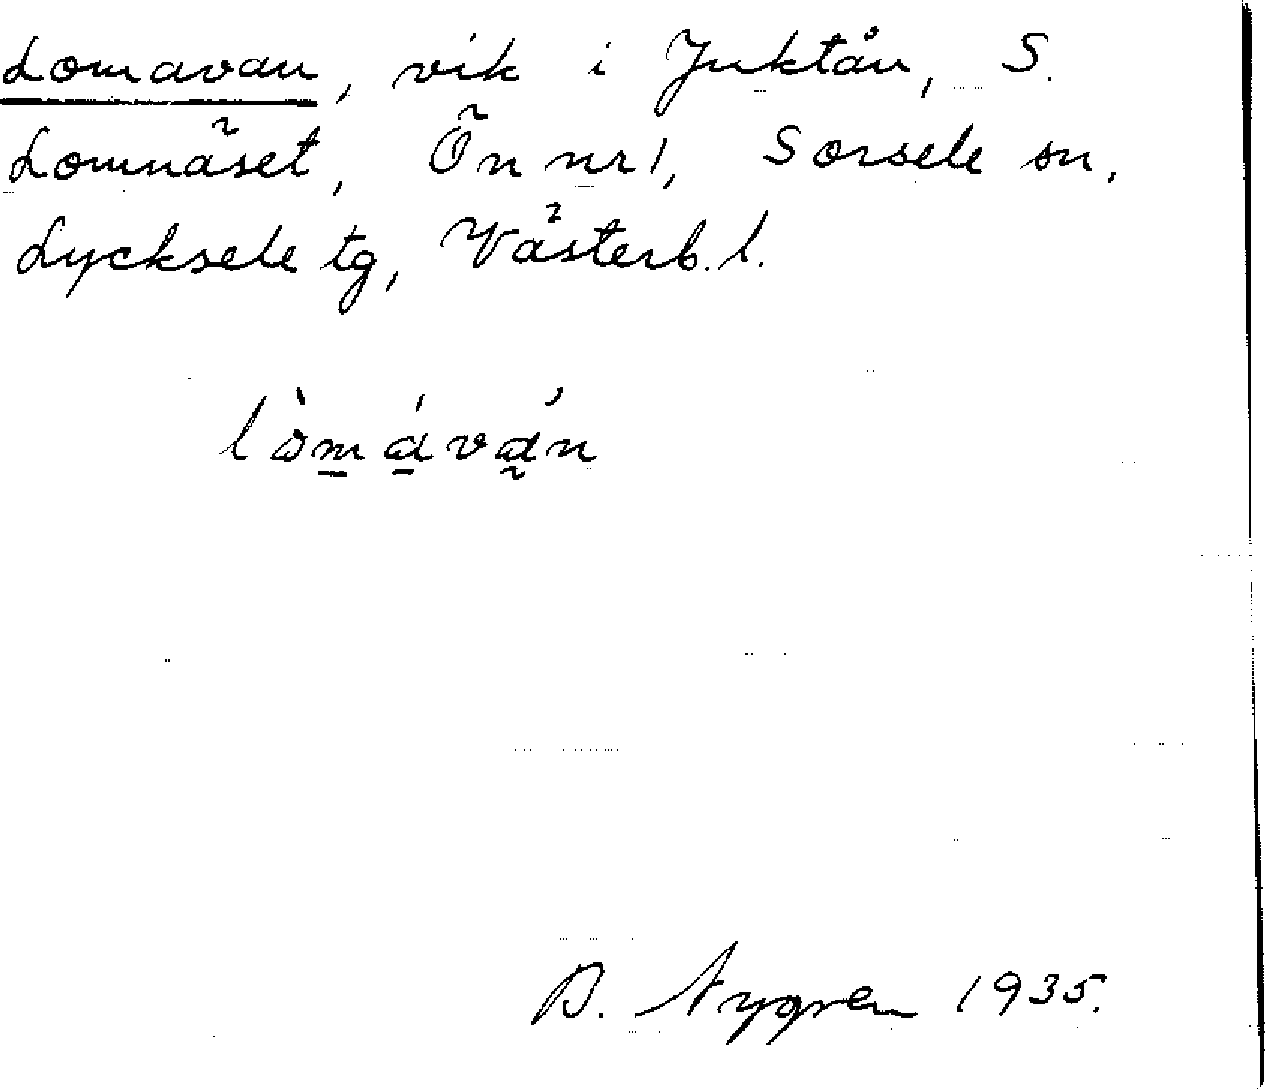 Lomavan, vik i Juktån, S.
Lomnäset, Ön nr 1, Sorsele sn,
Lycksele tg, Västerb. l.
lòmáván
B. Nygren 1935.